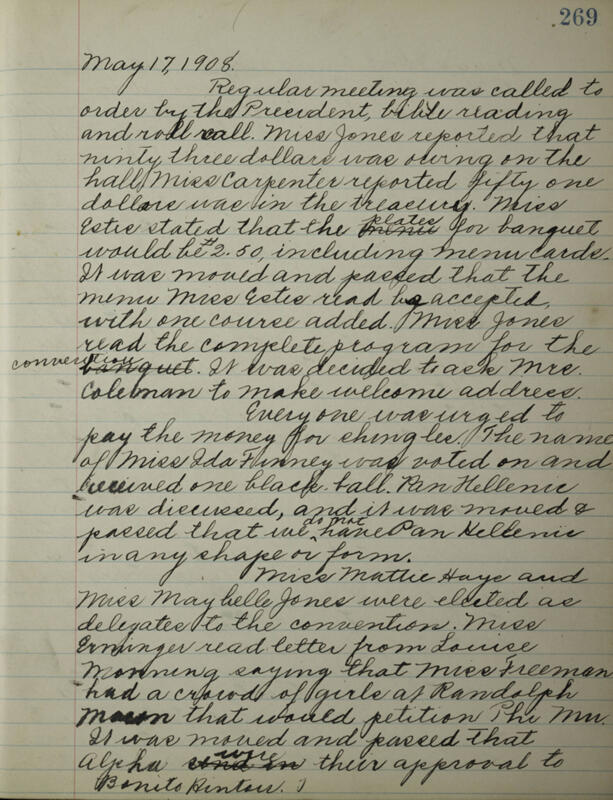 269
May 17, 1908.
Regular meeting was called to
order by the President, bible reading
and roll call. Miss Jones reported that
ninty three dollars was owing on the
hall, Miss Carpenter reported fifty one
dollars was in the treasury. Miss
plates
Estis stated that the menu for banquet
would be $2.50, including menu cards.
It was moved and passed that the
menu Miss Estis read be accepted,
with one course added. Miss Jones
read the complete program for the
convention
banquet. It was decided to ask Mrs.
Coleman to make welcome address.
Everyone was urged to
pay the money for shingles. The name
of Miss Ida Finney was voted on and
received one black-ball. Pan Hellenic
was discussed, and it was moved &
do not
passed that we have Pan Hellenic
in any shape or form.
Miss Mattie Hays and
Miss Maybelle Jones were elected as
delegates to the convention. Miss
Erminger read letter from Louise
Monning saying that Miss Freeman
had a crowd of girls at Randolph
Macon that would petition Phi Mu.
It was moved and passed that
wire
Alpha send in their approval to
Bonito